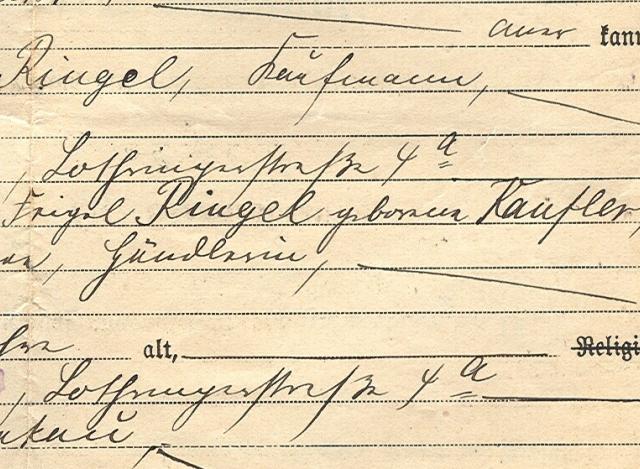 aner kann
Ringel, Kaufmann,
, Lothringerstraße 4a
Feigel Ringel geborene Kaufler,
, Händlerin,
alt, Religi
, Lothringerstraße 4a